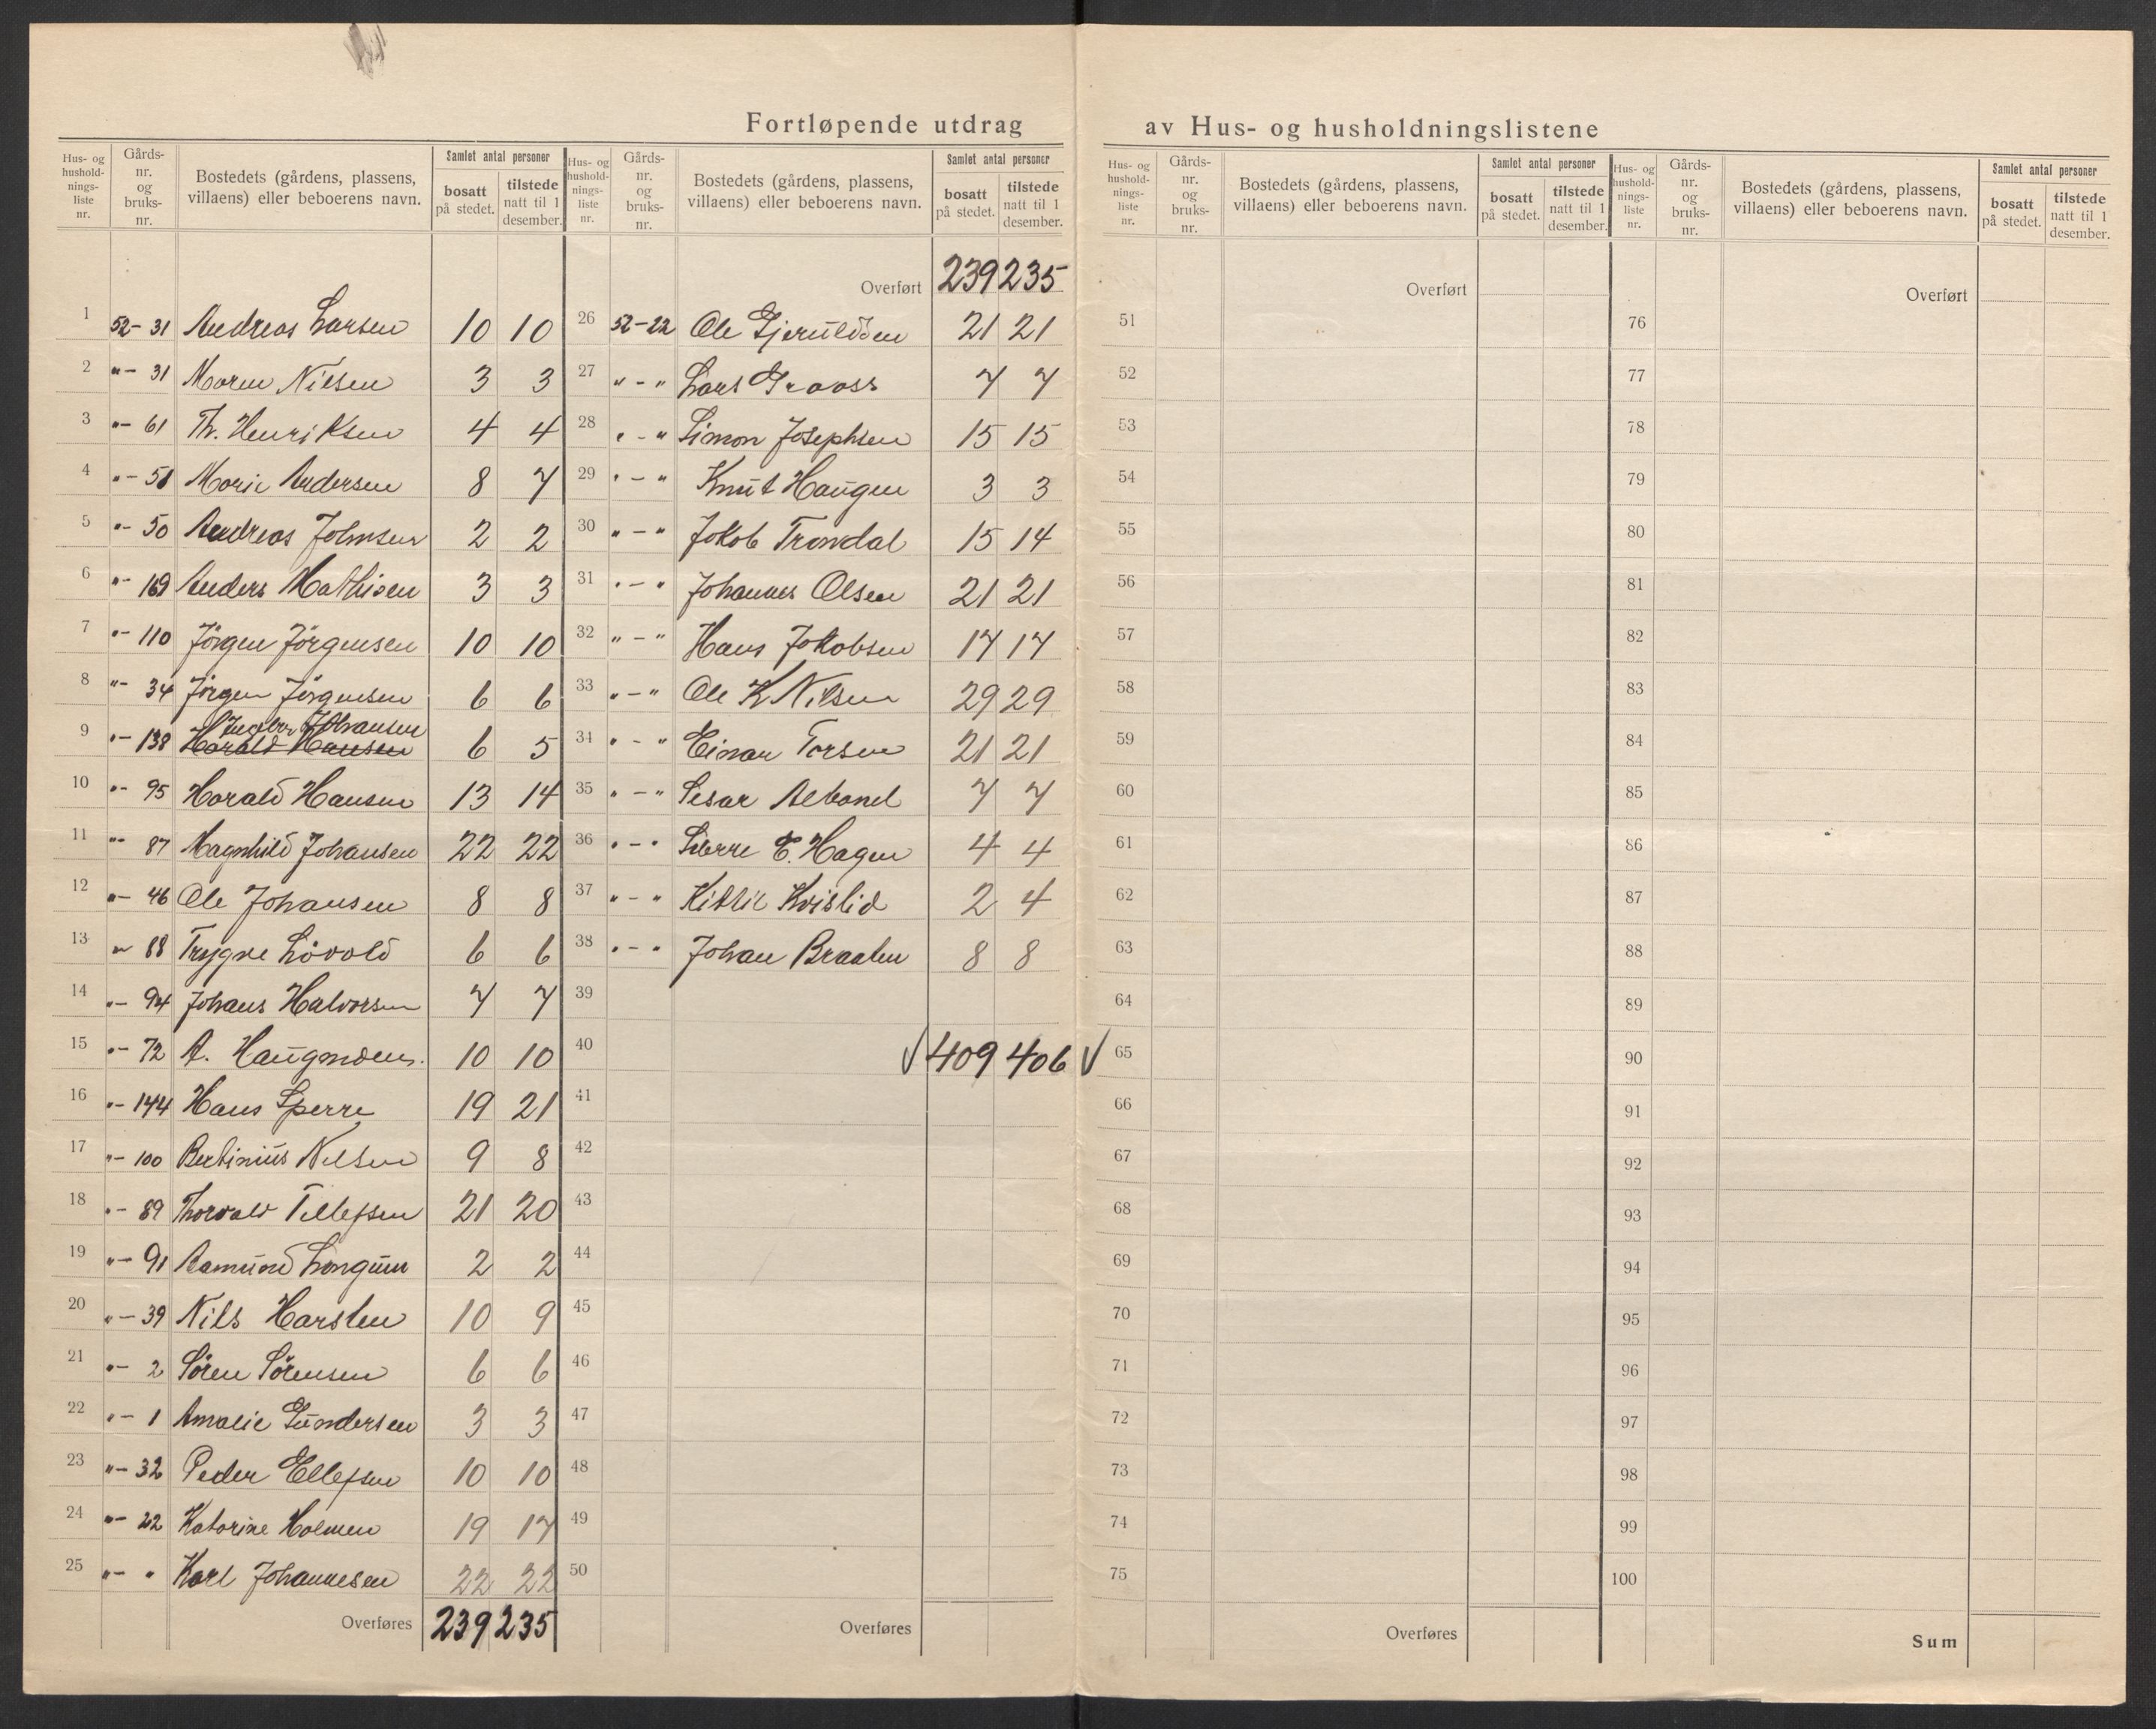 Fortløpende utdrag av Hus- og husholdningslistene
Hus- og husholdningsliste nr. Gårds-nr. og bruks-nr. Bostedets (gårdens, plassens, villaens) eller beboerens navn. Samlet antal personer bosatt på stedet. tilstede natt til 1 desember.
1 52-31 Andreas Larsen 10 10
2 "- 31 Maren Nilsen 3 3
3 "- 61 Th. Henriksen 4 4
4 "- 51 Marie Andersen 8 7
5 "- 50 Andreas Johnsen 2 2
6 "- 169 Anders Mathisen 3 3
7 "- 110 Jörgen Jörgensen 10 10
8 "- 34 Jörgen Jörgensen 6 6
Johansen
9 "- 138 Harald Hansen 6 5
10 "- 95 Harald Hansen 13 14
11 "- 87 Magnhild Johansen 22 22
12 "- 46 Ole Johansen 8 8
13 "- 88 Trygve Lövold 6 6
14 "- 94 Johans Halvorsen 7 7
15 "- 72 A. 10 10
16 "- 144 Hans Sperre 19 21
17 "- 100 Bertinius Nilsen 9 8
18 "- 89 Thorvald Tellefsen 21 20
19 "- 91 Aamund Longum 2 2
20 "- 39 Nils Harsten 10 9
21 "- 2 Sören Sörensen 6 6
22 "- 1 Amalie Gundersen 3 3
23 "- 32 Peder Ellefsen 10 10
24 "- 22 Katarine Holmen 19 17
25 "- " Karl Johannesen 22 22
Overføres 239 235
Hus- og husholdningsliste nr. Gårds-nr. og bruks-nr. Bostedets (gårdens, plassens, villaens) eller beboerens navn. Samlet antal personer bosatt på stedet. tilstede natt til 1 desember.
Overført 239 235
26 52-22 Ole Gjeruldsen 21 21
27 "-" Lars Graass 7 7
28 "-" Simon Josephsen 15 15
29 "-" Knut Haugen 3 3
30 "-" Jakob Trondal 15 14
31 "-" Johannes Olsen 21 21
32 "-" Hans Jakobsen 17 17
33 "-" Ole K Nilsen 29 29
34 "-" Einar Torsen 21 21
35 "-" Sesar 7 7
36 "-" Sverre E. Hagen 4 4
37 "-" Kittil Kvislid 2 4
38 "-" Johan Braaten 8 8
39
40 √ 409 406 √
41
42
43
44
45
46
47
48
49
50
Overføres
Hus- og husholdningsliste nr. Gårds-nr. og bruks-nr. Bostedets (gårdens, plassens, villaens) eller beboerens navn. Samlet antal personer bosatt på stedet. tilstede natt til 1 desember.
Overført
51
52
53
54
55
56
57
58
59
60
61
62
63
64
65
66
67
68
69
70
71
72
73
74
75
Overføres
Hus- og husholdningsliste nr. Gårds-nr. og bruks-nr. Bostedets (gårdens, plassens, villaens) eller beboerens navn. Samlet antal personer bosatt på stedet. tilstede natt til 1 desember.
Overført
76
77
78
79
80
81
82
83
84
85
86
87
88
89
90
91
92
93
94
95
96
97
98
99
100
Sum